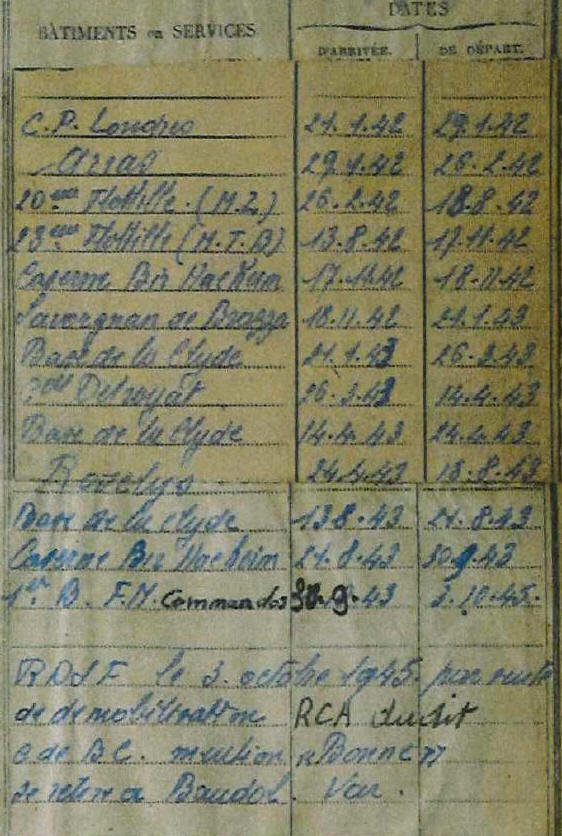 BATIMENTS ou SERVICES DATES
D'ARRIVÉE. DE DÉPART.
C.P. Londres 21.1.42 29.1.42
Arras 29.1.42 26.2.42
20ème Flottille. (M.L) 26.2.42 18.8.42
23ème Flottille (M.T.B) 13.8.42 17.11.42
Caserne Bir Hacheim 17.11.42 18.11.42
Savorgnan de Brazza 18.11.42 21.1.43
Base de la Clyde 21.1.43 26.3.43
Delroyat 26.3.43 14.4.43
Base de la Clyde 14.4.43 24.4.43
Roselys 24.4.43 13.8.43
Base de la Clyde 13.8.43 21.8.43
Caserne Bir Hacheim 21.8.43 30.9.43
1er B. F.M. Commandos 30.9.43 3.10.45.
RDSF le 3. octobre 1945. par suite
de démobilisation RCA dudit
C de B.C. mention "Bonne"
se retire à Bandol. Var.